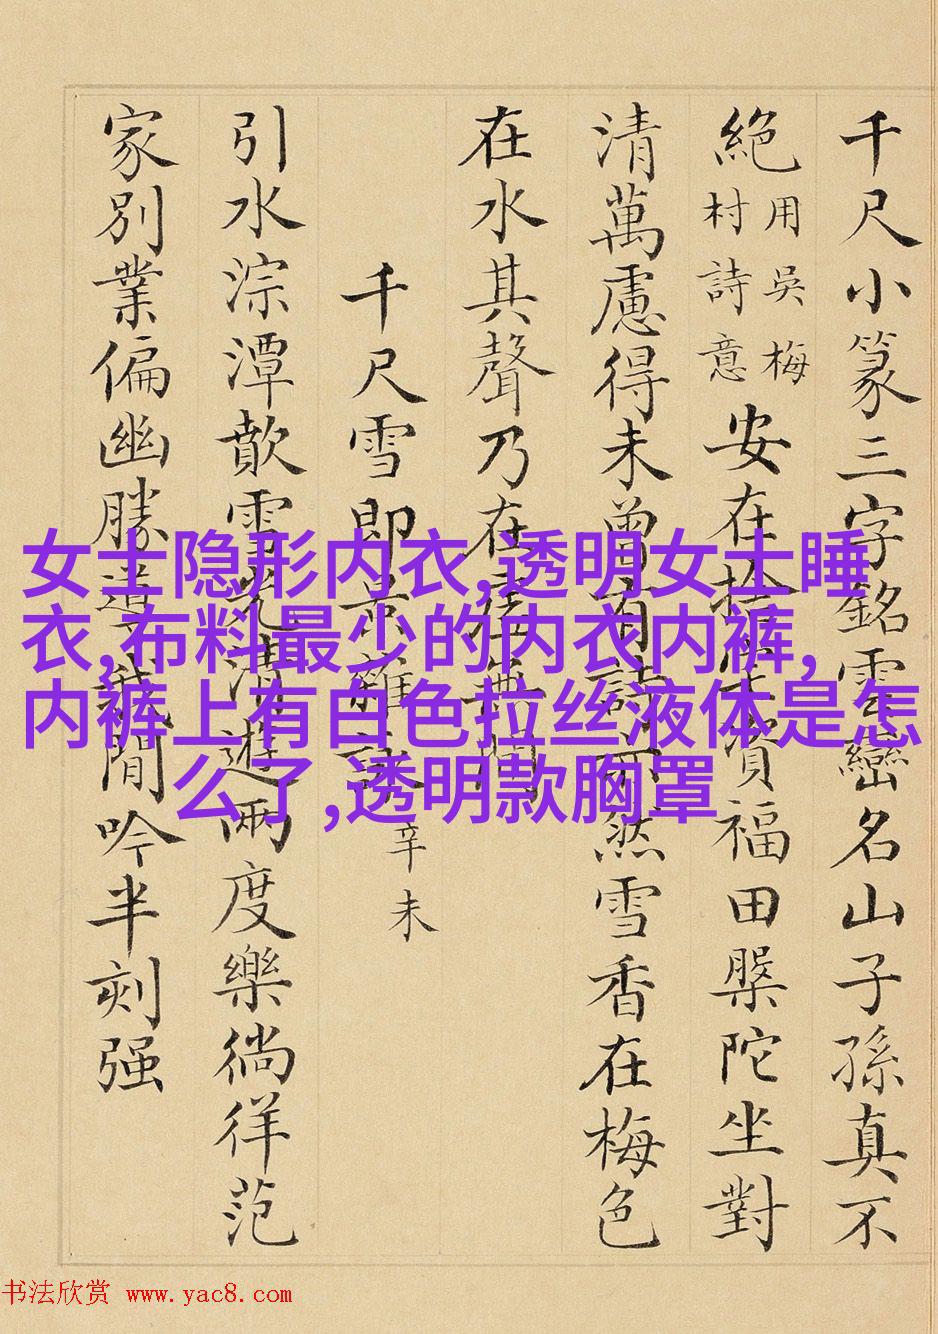 千尺小篆三字銘雲巒名山子孫真不
絕用吳梅村詩意安在拾福田槃陀坐對
清萬慮得未曾有然雪香在梅色
在水其聲乃在無間
千尺雪即景雜詠辛未
引水淙潭歕雪遊兩度樂徜徉范
家別業偏幽勝閒吟半刻强
女士隐形内衣,透明女士睡
衣,布料最少的内衣内裤,
内裤上有白色拉丝液体是怎
么了,透明款胸罩
书法欣赏 www.yac8.com